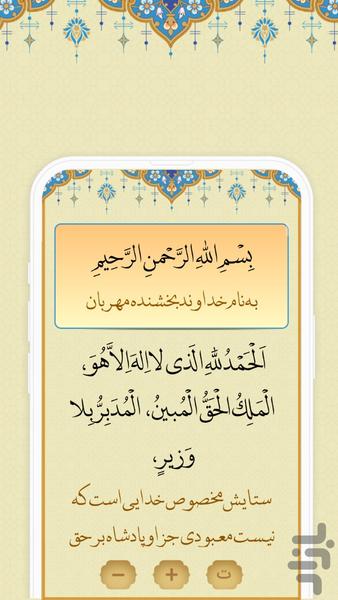 بِسْمِ اللهِ الرَّحْمنِ الرَّحِيمِ
به نام خداوند بخشنده مهربان
اَلْحَمْدُ لِلّهِ الَّذی لا اِلهَ اِلاَّ هُوَ،
الْمَلِكُ الْحَقُّ الْمُبینُ، الْمُدَبِّرُ بِلا
وَزیرٍ،
ستایش مخصوص خدایی است که
نیست معبودی جز او پادشاه بر حق
− + ت
بازار